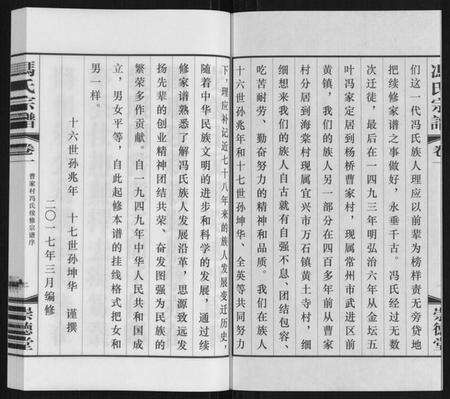 馮氏宗譜
卷一
們这一代冯氏族人理应以前辈为榜样责无旁贷地
把续修家谱之事做好，永垂千古。冯氏经过无数
次迁徒，最后在一四九三年明弘治六年从金坛五
叶冯家定居到杨桥曹家村，现属常州市武进区前
黄镇，我们的族人另一部分在四百多年前从曹家
村分居到海棠村现属宜兴市万石镇黄土寺村，细
细想来我们的族人自古就有自强不息、团结包容、
吃苦耐劳、勤奋努力的精神和品质。我们在族人
十六世孙兆年和十七世孙坤华、全英等共同努力
崇德堂
下，理应补记近七十八年来的族人发展变迁历史，
随着中华民族文明的进步和科学的发展，通过续
修家谱熟悉了解冯氏族人发展沿革，思源致远发
扬先辈的创业精神团结共荣、奋发图强为民族的
繁荣多作贡献。自一九四九年中华人民共和国成
立，男女平等，自此起修本谱的挂线格式把女和
男一样。
十六世孙兆年　十七世孙坤华　谨撰
二〇一七年三月编修
馮氏宗譜
卷一
曹家村冯氏续修宗谱序
崇德堂